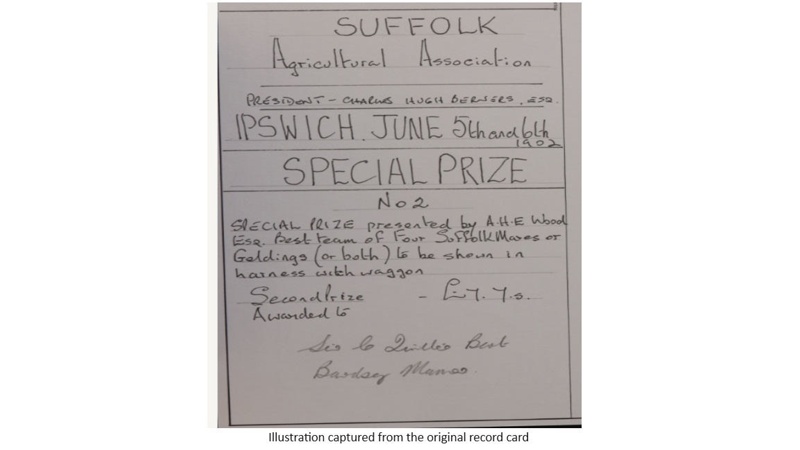 SUFFOLK
Agricultural Association
PRESIDENT - CHARLES HUGH BERNERS, ESQ.
IPSWICH. JUNE 5th and 6th
1902
SPECIAL PRIZE
No 2
SPECIAL PRIZE presented by A.H.E Wood
Esq. Best team of Four Suffolk Mares or
Geldings (or both) to be shewn in
harness with waggon
Second Prize - £7. 7s.
Awarded to
Sir C Quilter Bart
Bawdsey Manor.
Illustration captured from the original record card